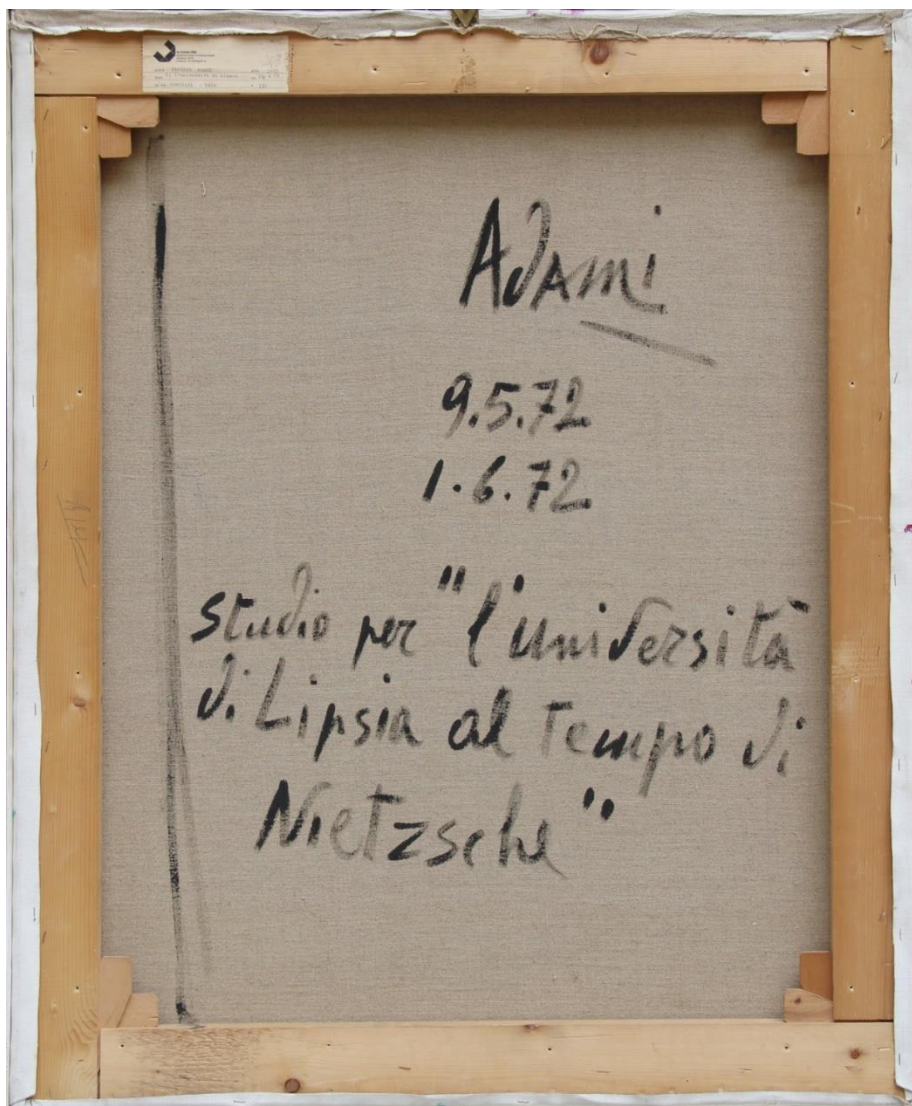 Adami
9.5.72
1.6.72
studio per "l'università
di Lipsia al tempo di
Nietzsche"